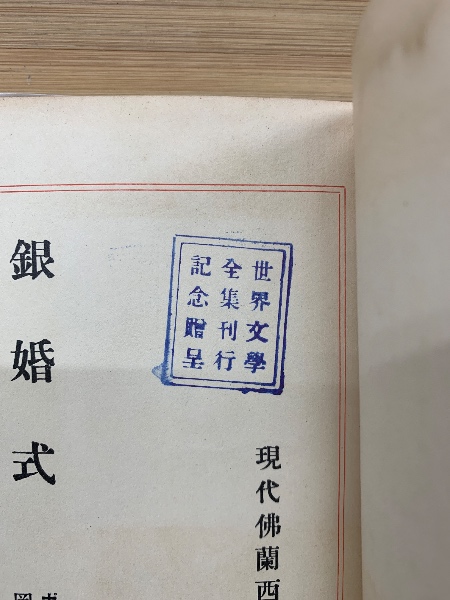 世界文學
全集刊行
記念贈呈
現代佛蘭西
銀婚式